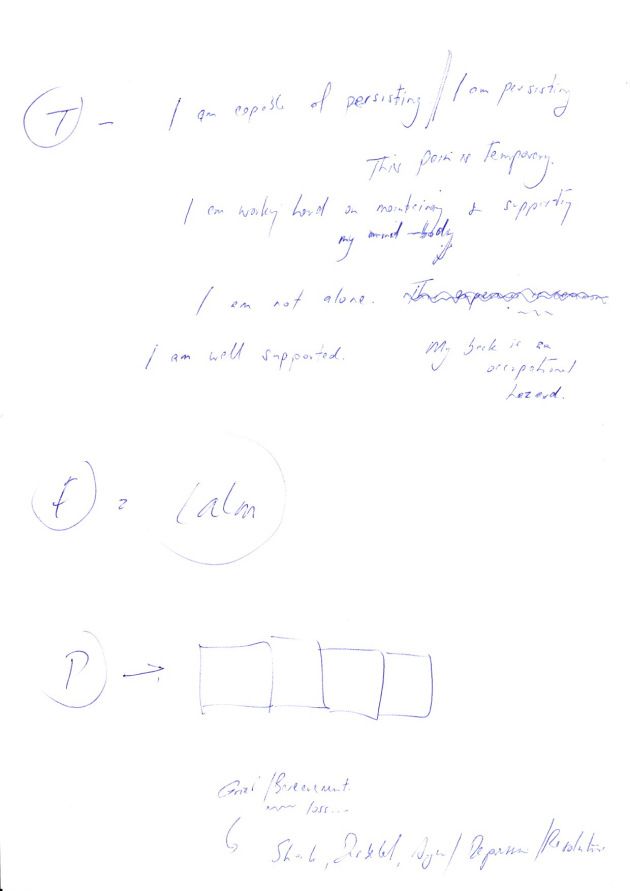 T - I am capable of persisting // I am persisting
This pain is temporary.
I am working hard on maintaining & supporting
my mind-body
I am not alone.
I am well supported. My back is an
occupational
hazard.
f = Calm
P →
Grief / Bereavement
loss...
Shock, Disbelief, Anger / Depression / Resolution